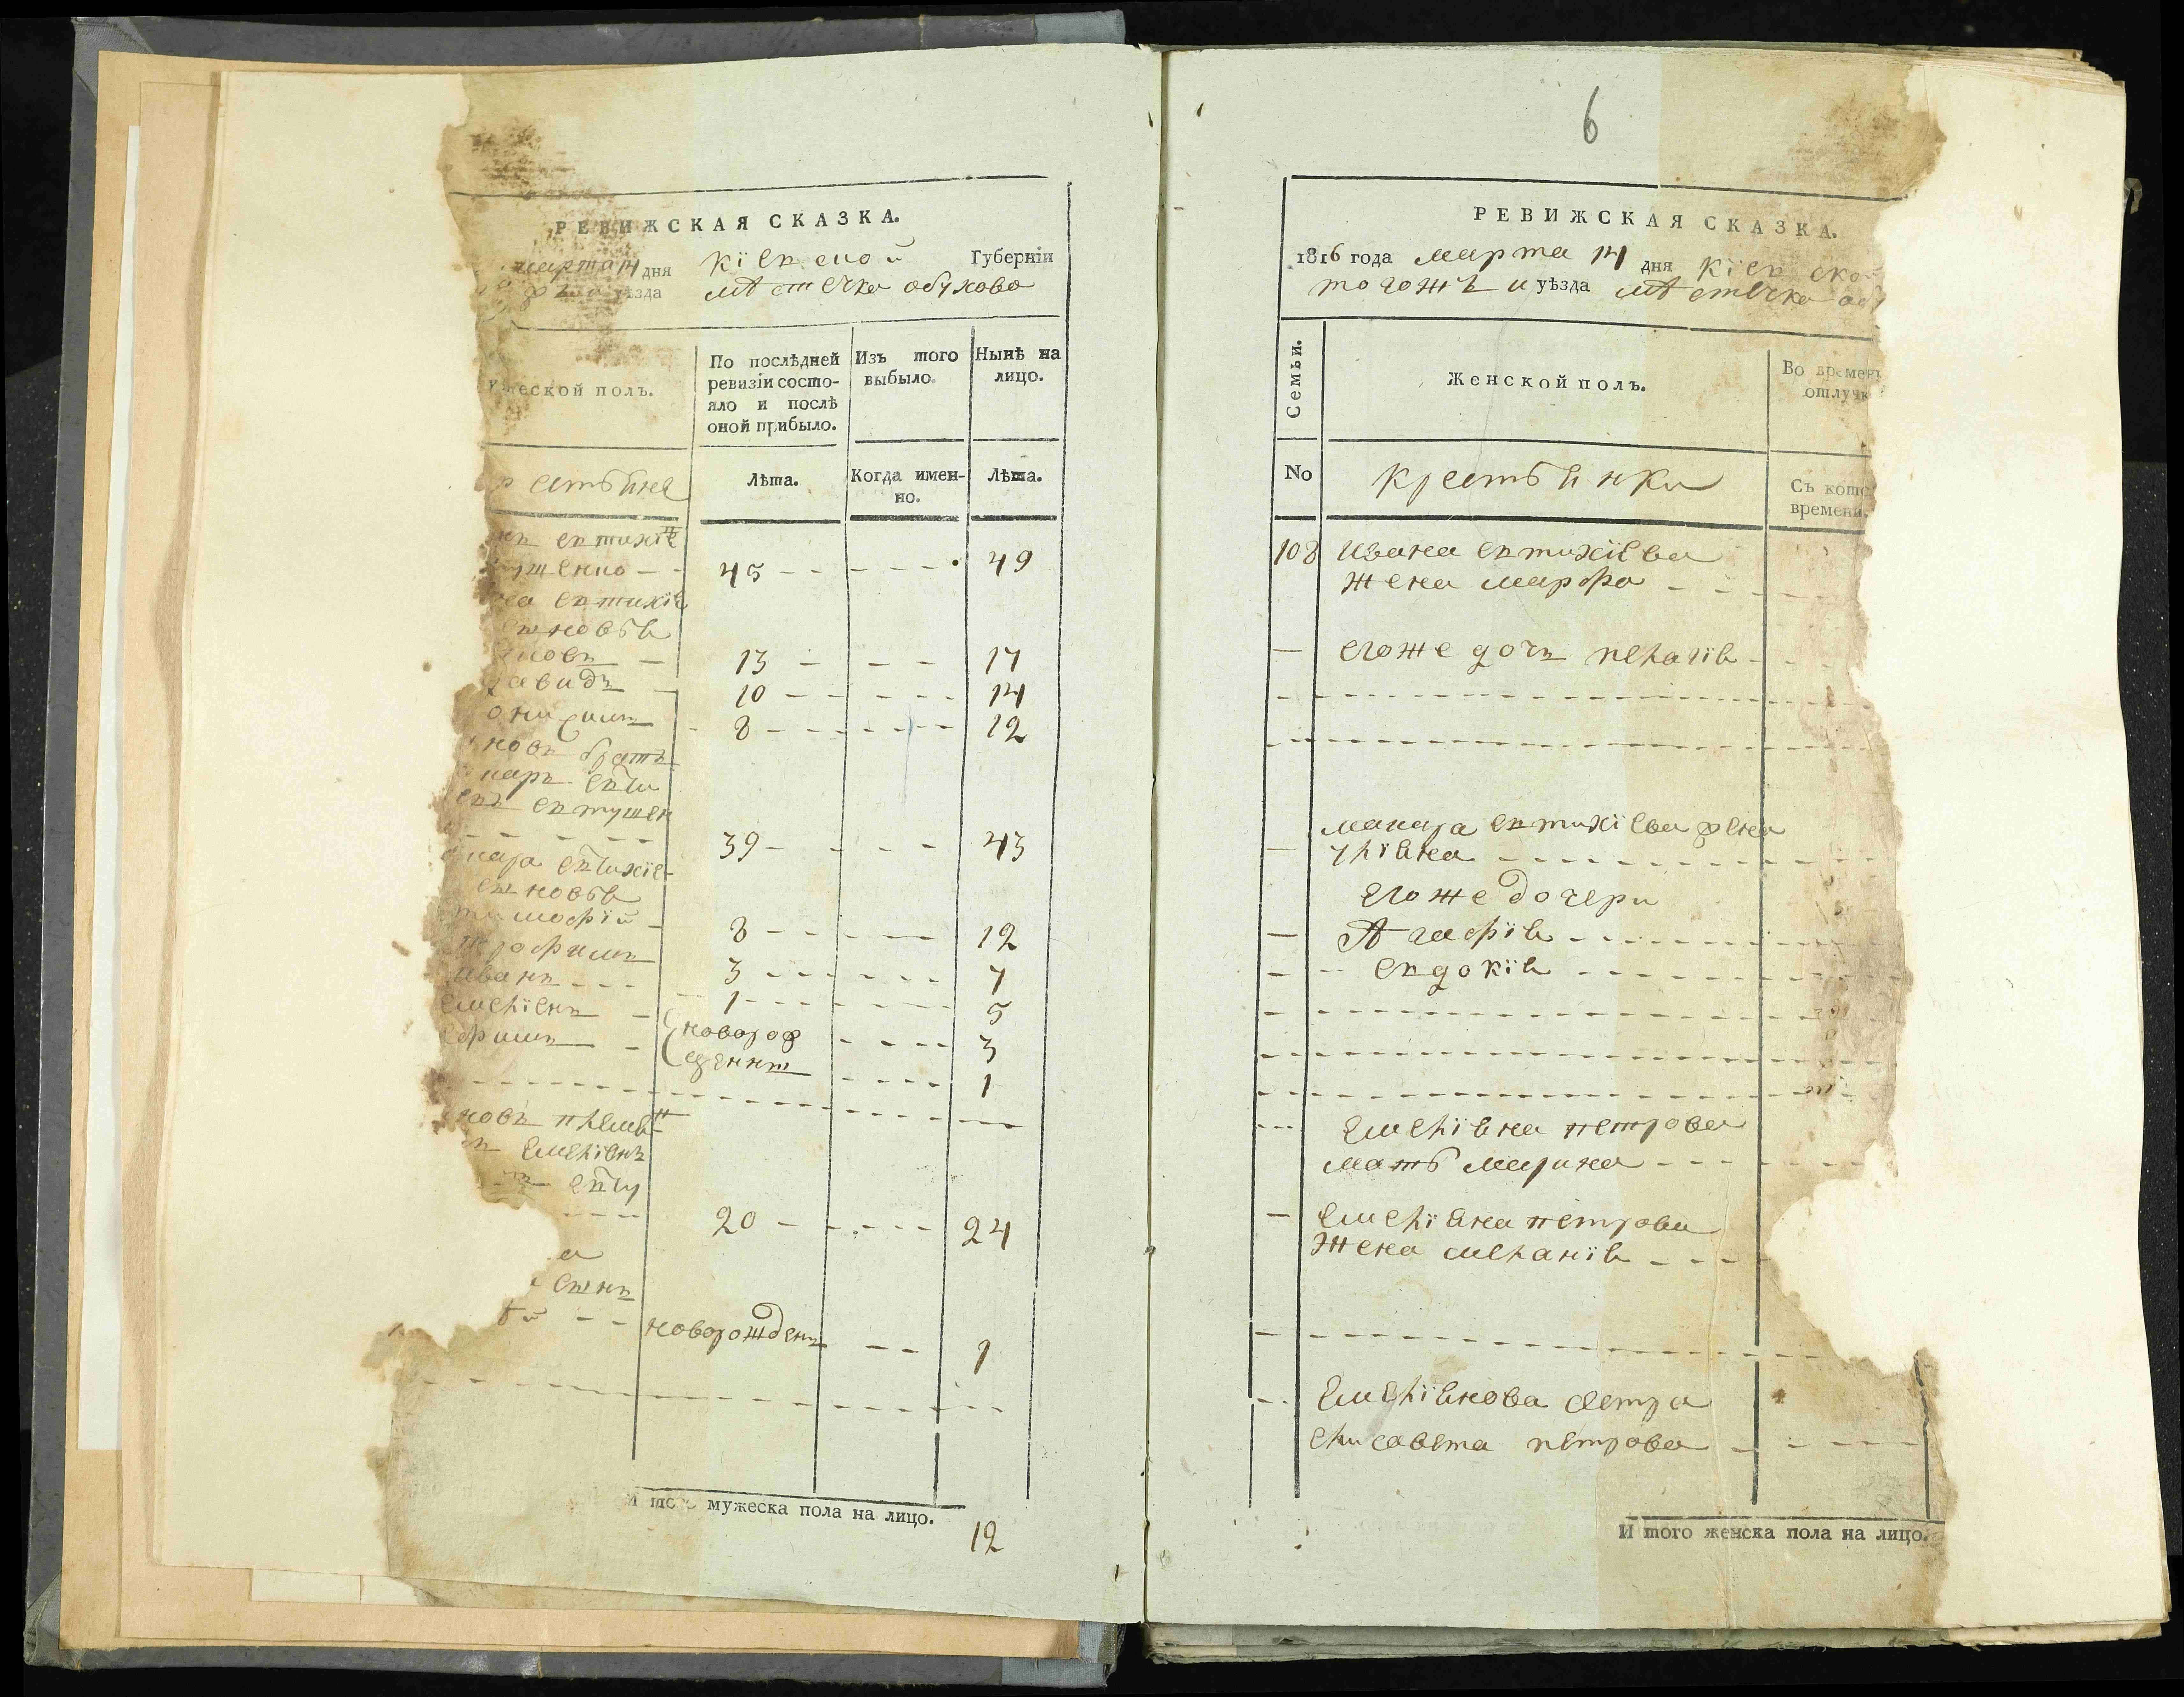 РЕВИЖСКАЯ СКАЗКА.
марта 14 дня Кіевской Губерніи
уѣзда мѣстечка обухова
жеской полъ.
По послѣдней
ревизіи состо-
яло и послѣ
оной прибыло.
Изъ того
выбыло.
Нынѣ на
лицо.
естьяне
Лѣта.
Когда имен-
но.
Лѣта.
евтихіе
45 49
евтихіе
сыновья
13 17
давидъ
10 14
онисимъ
8 12
братъ
39 43
сыновья
тимофій
8 12
трофимъ
3 7
иванъ
1 5
емеліянъ
новорож
3
ефимъ
денны
1
новъ племе
емеліянъ
20 24
сынъ
новорожденъ 1
И того мужеска пола на лицо.
12
6
РЕВИЖСКАЯ СКАЗКА.
1816 года марта 14 дня Кіевской
тогожъ и уѣзда мѣстечка об
Семьи.
Женской полъ.
Во времен
отлучк
No
крестьянки
Съ кото
времени.
108 ивана евтихіева
жена марфа
егоже дочь пелагія
макара евтихіева жена
уліяна
егоже дочери
Агафія
евдокія
емеліяна петрова
мать марина
емеліяна петрова
жена меланія
емеліянова сестра
елисавета петрова
И того женска пола на лицо.